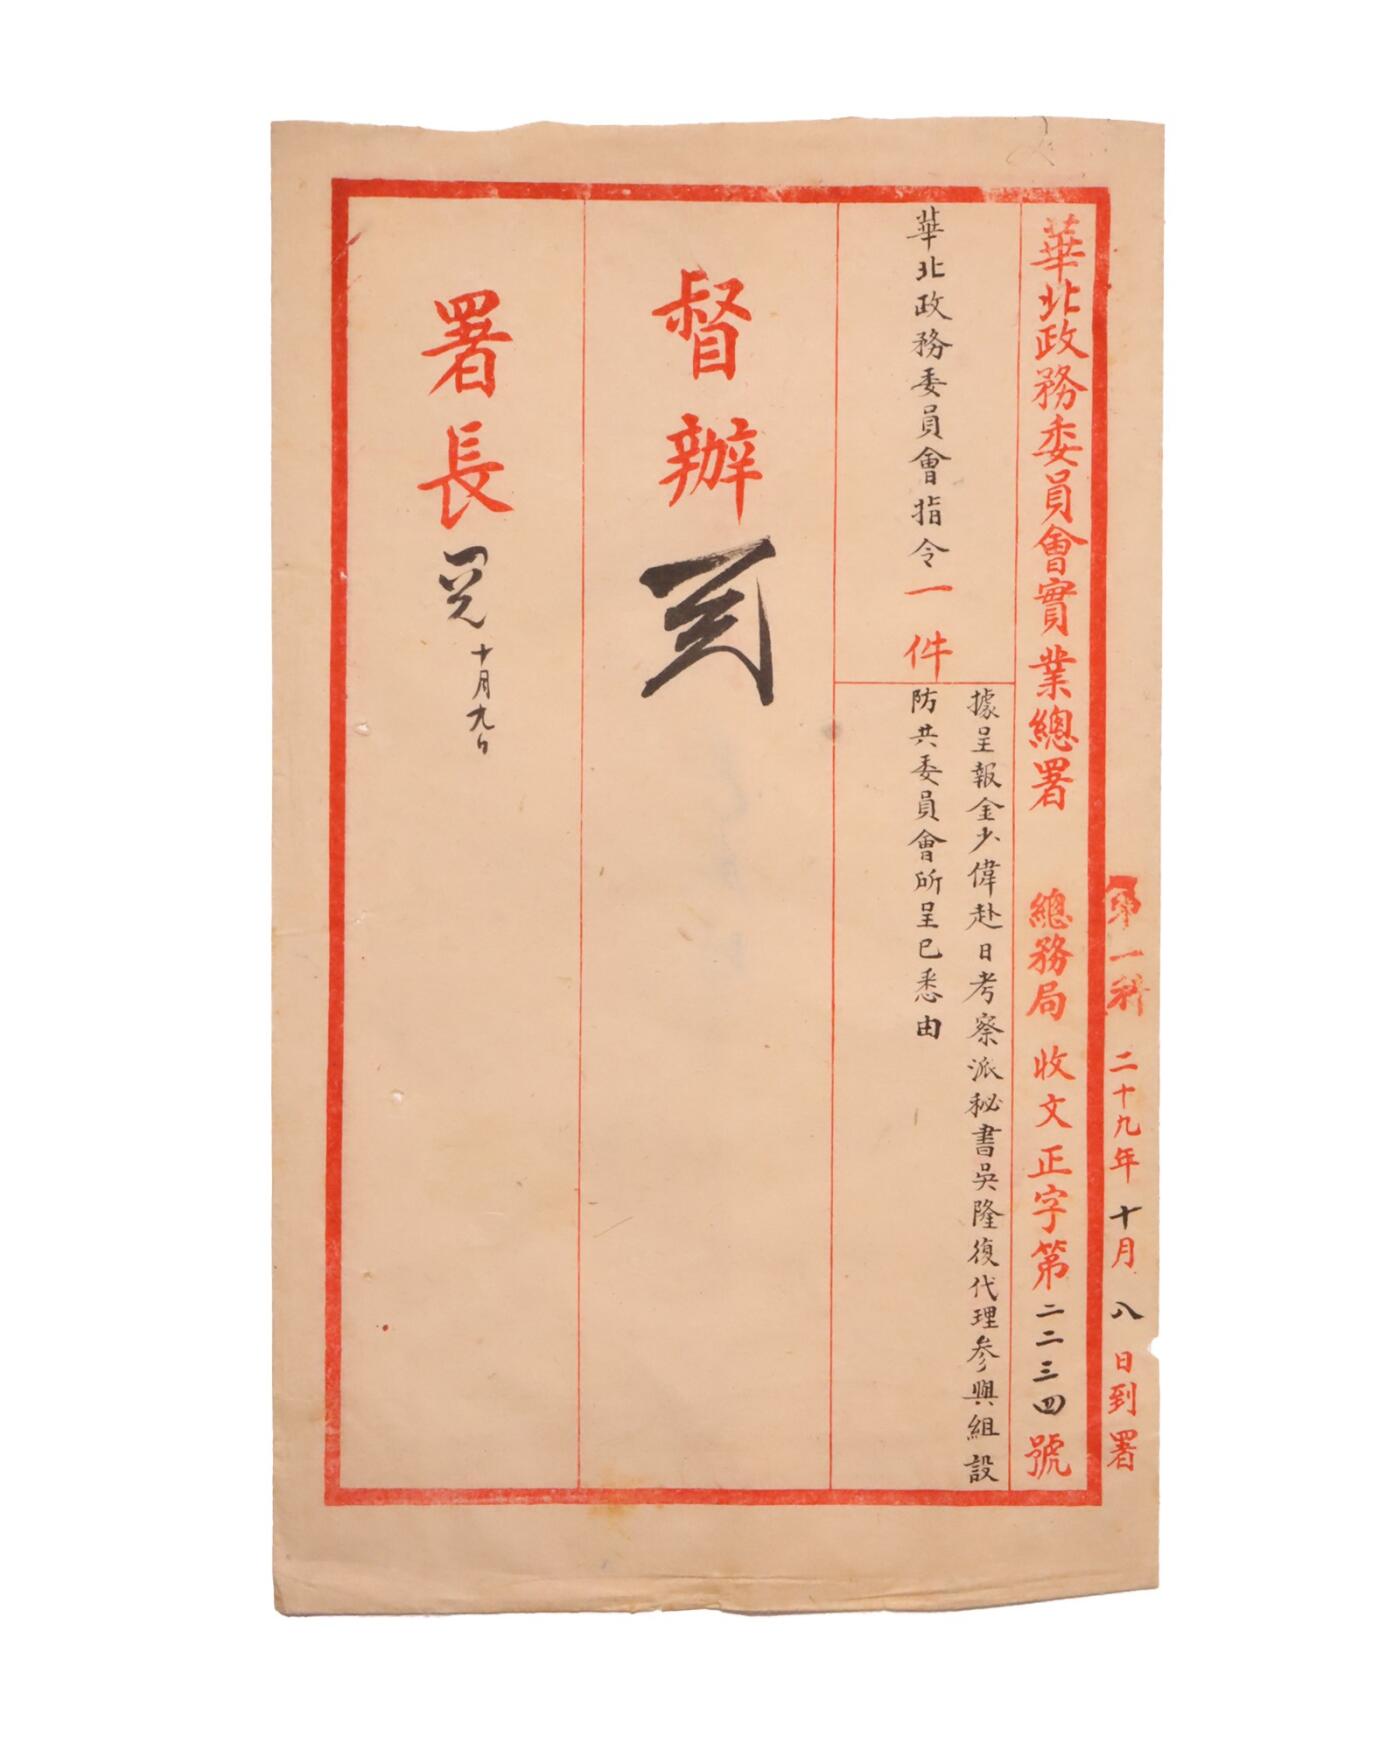 第一科 二十九年十月八日到署
華北政務委員會實業總署 總務局收文正字第二二三四號
華北政務委員會指令一件
據呈報金少偉赴日考察派秘書吳隆復代理參與組設
防共委員會所呈已悉由
督辦
署長
十月九日